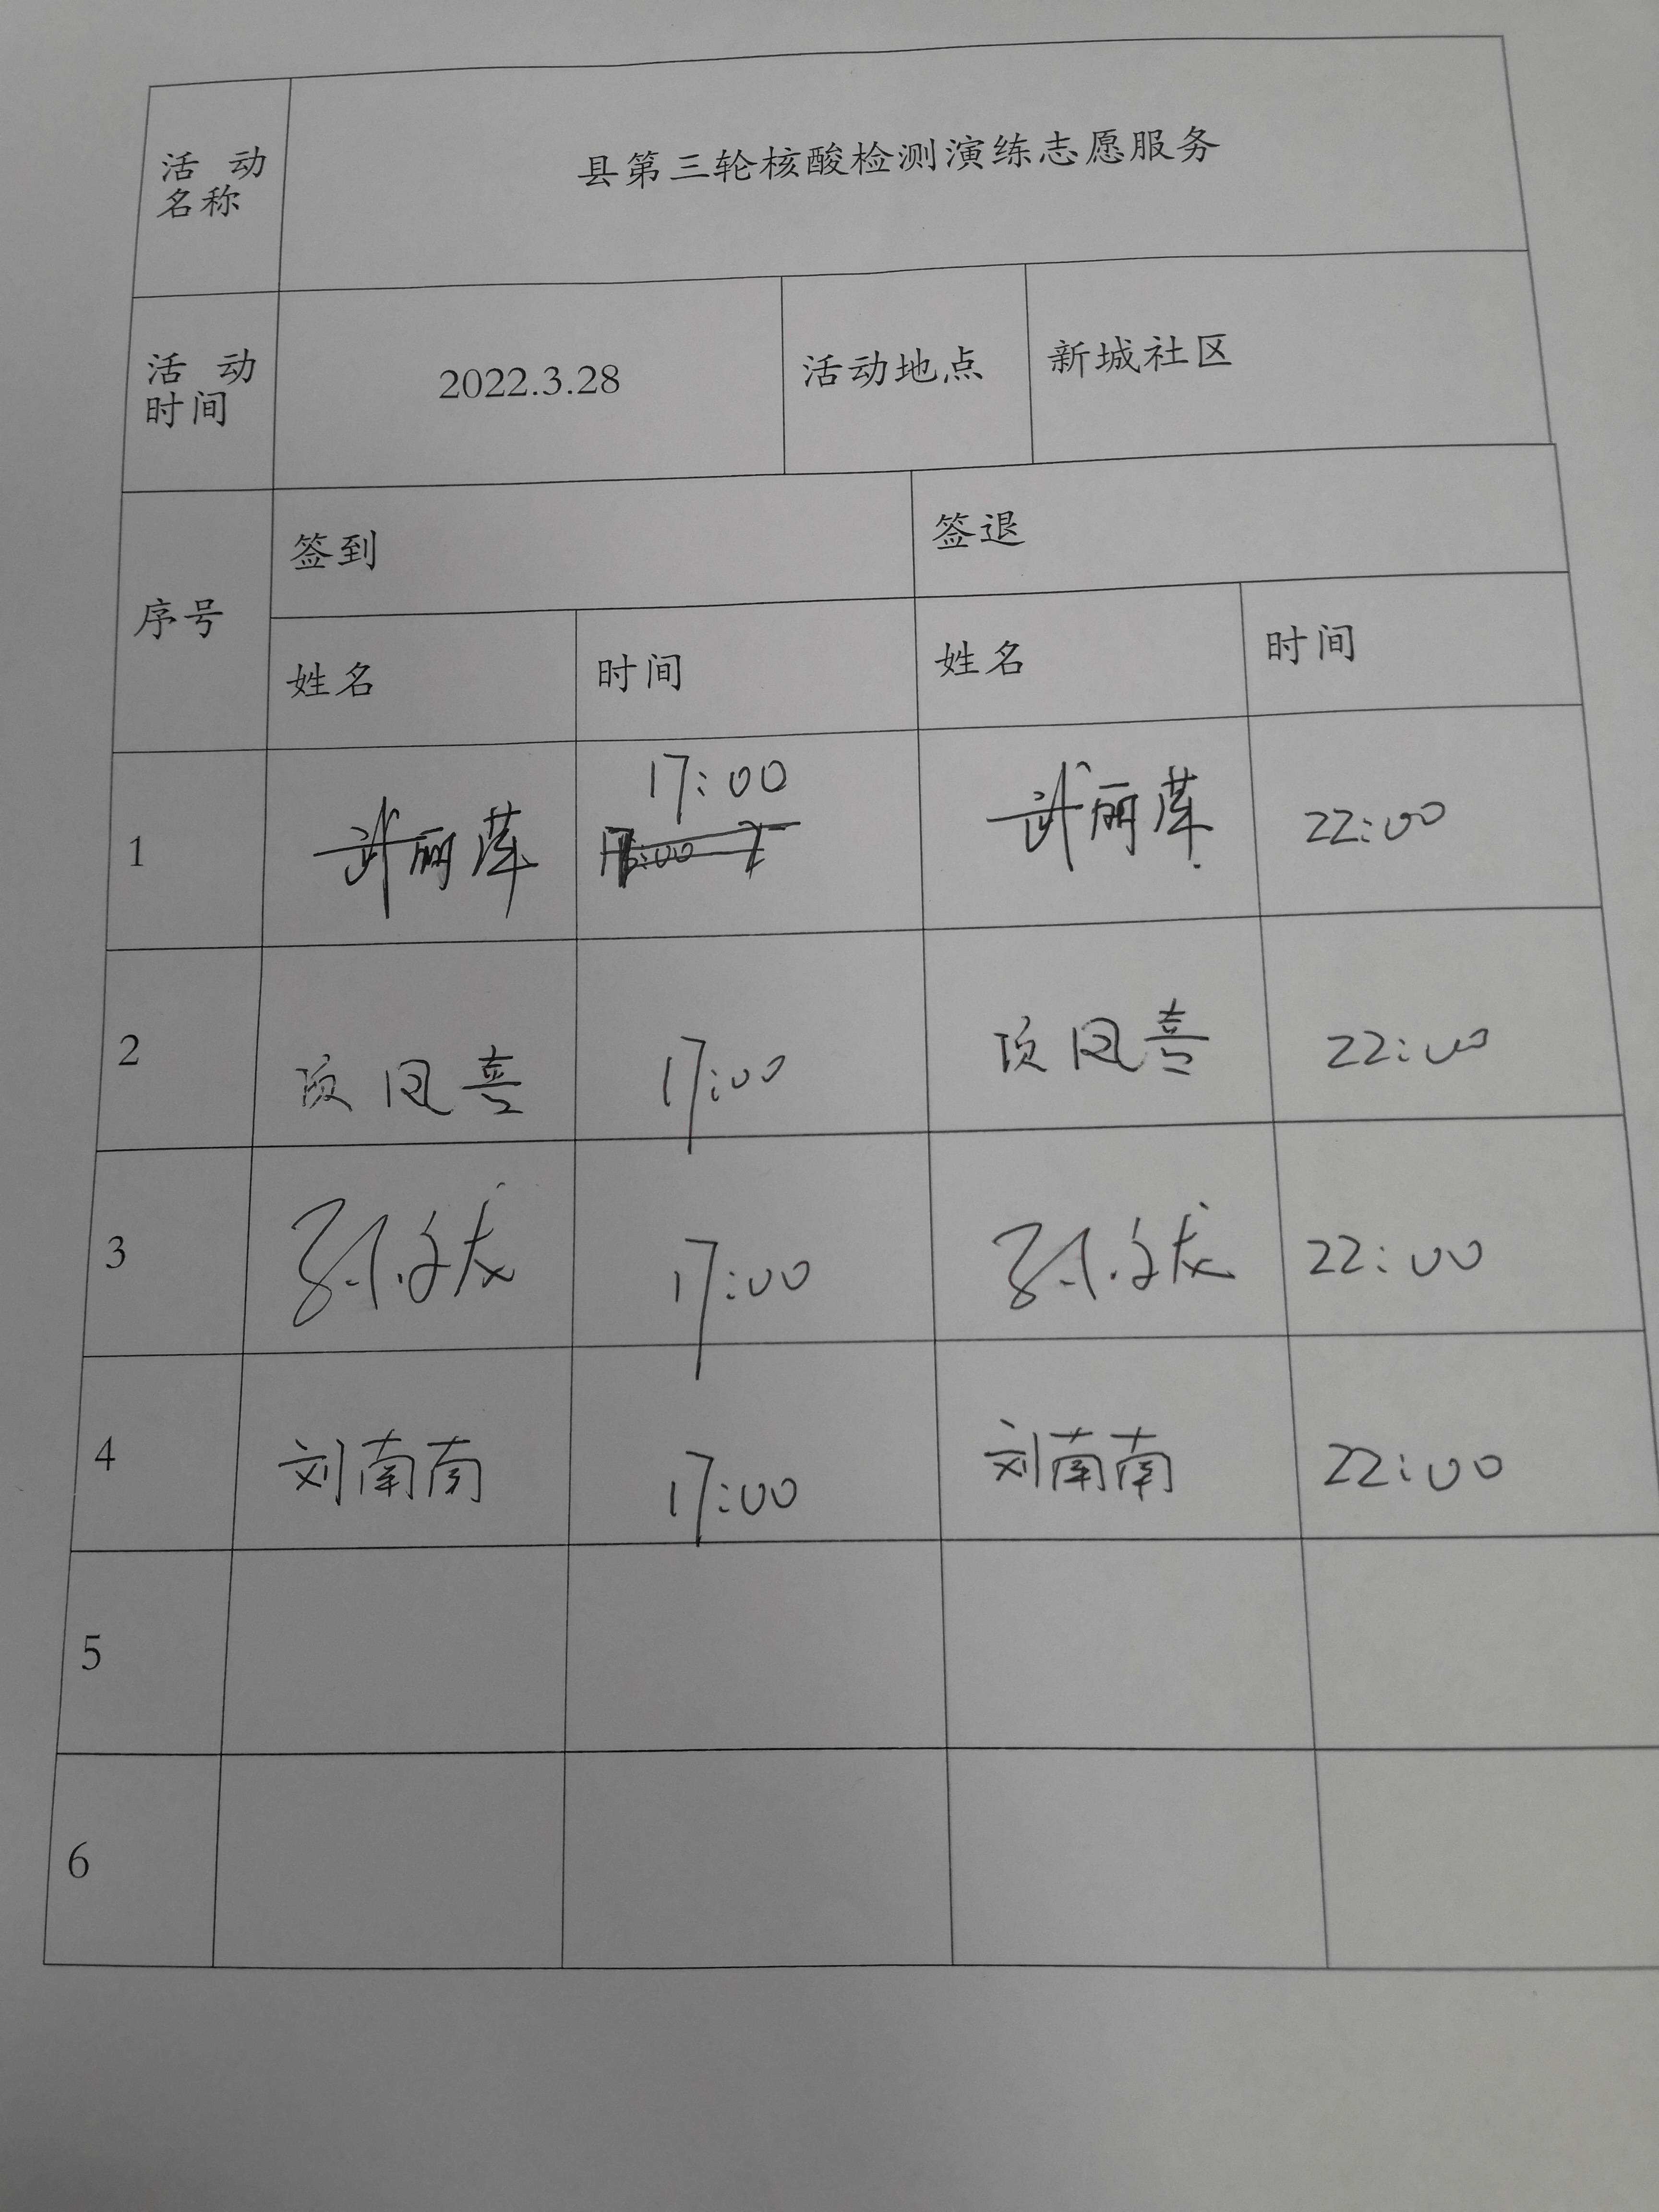 活 动
名称
县第三轮核酸检测演练志愿服务
活 动
时间
2022.3.28
活动地点
新城社区
序号
签到
签退
姓名
时间
姓名
时间
1
武丽萍
17:00
武丽萍
22:00
2
凤喜
17:00
凤喜
22:00
3
孙
17:00
孙
22:00
4
刘南南
17:00
刘南南
22:00
5
6